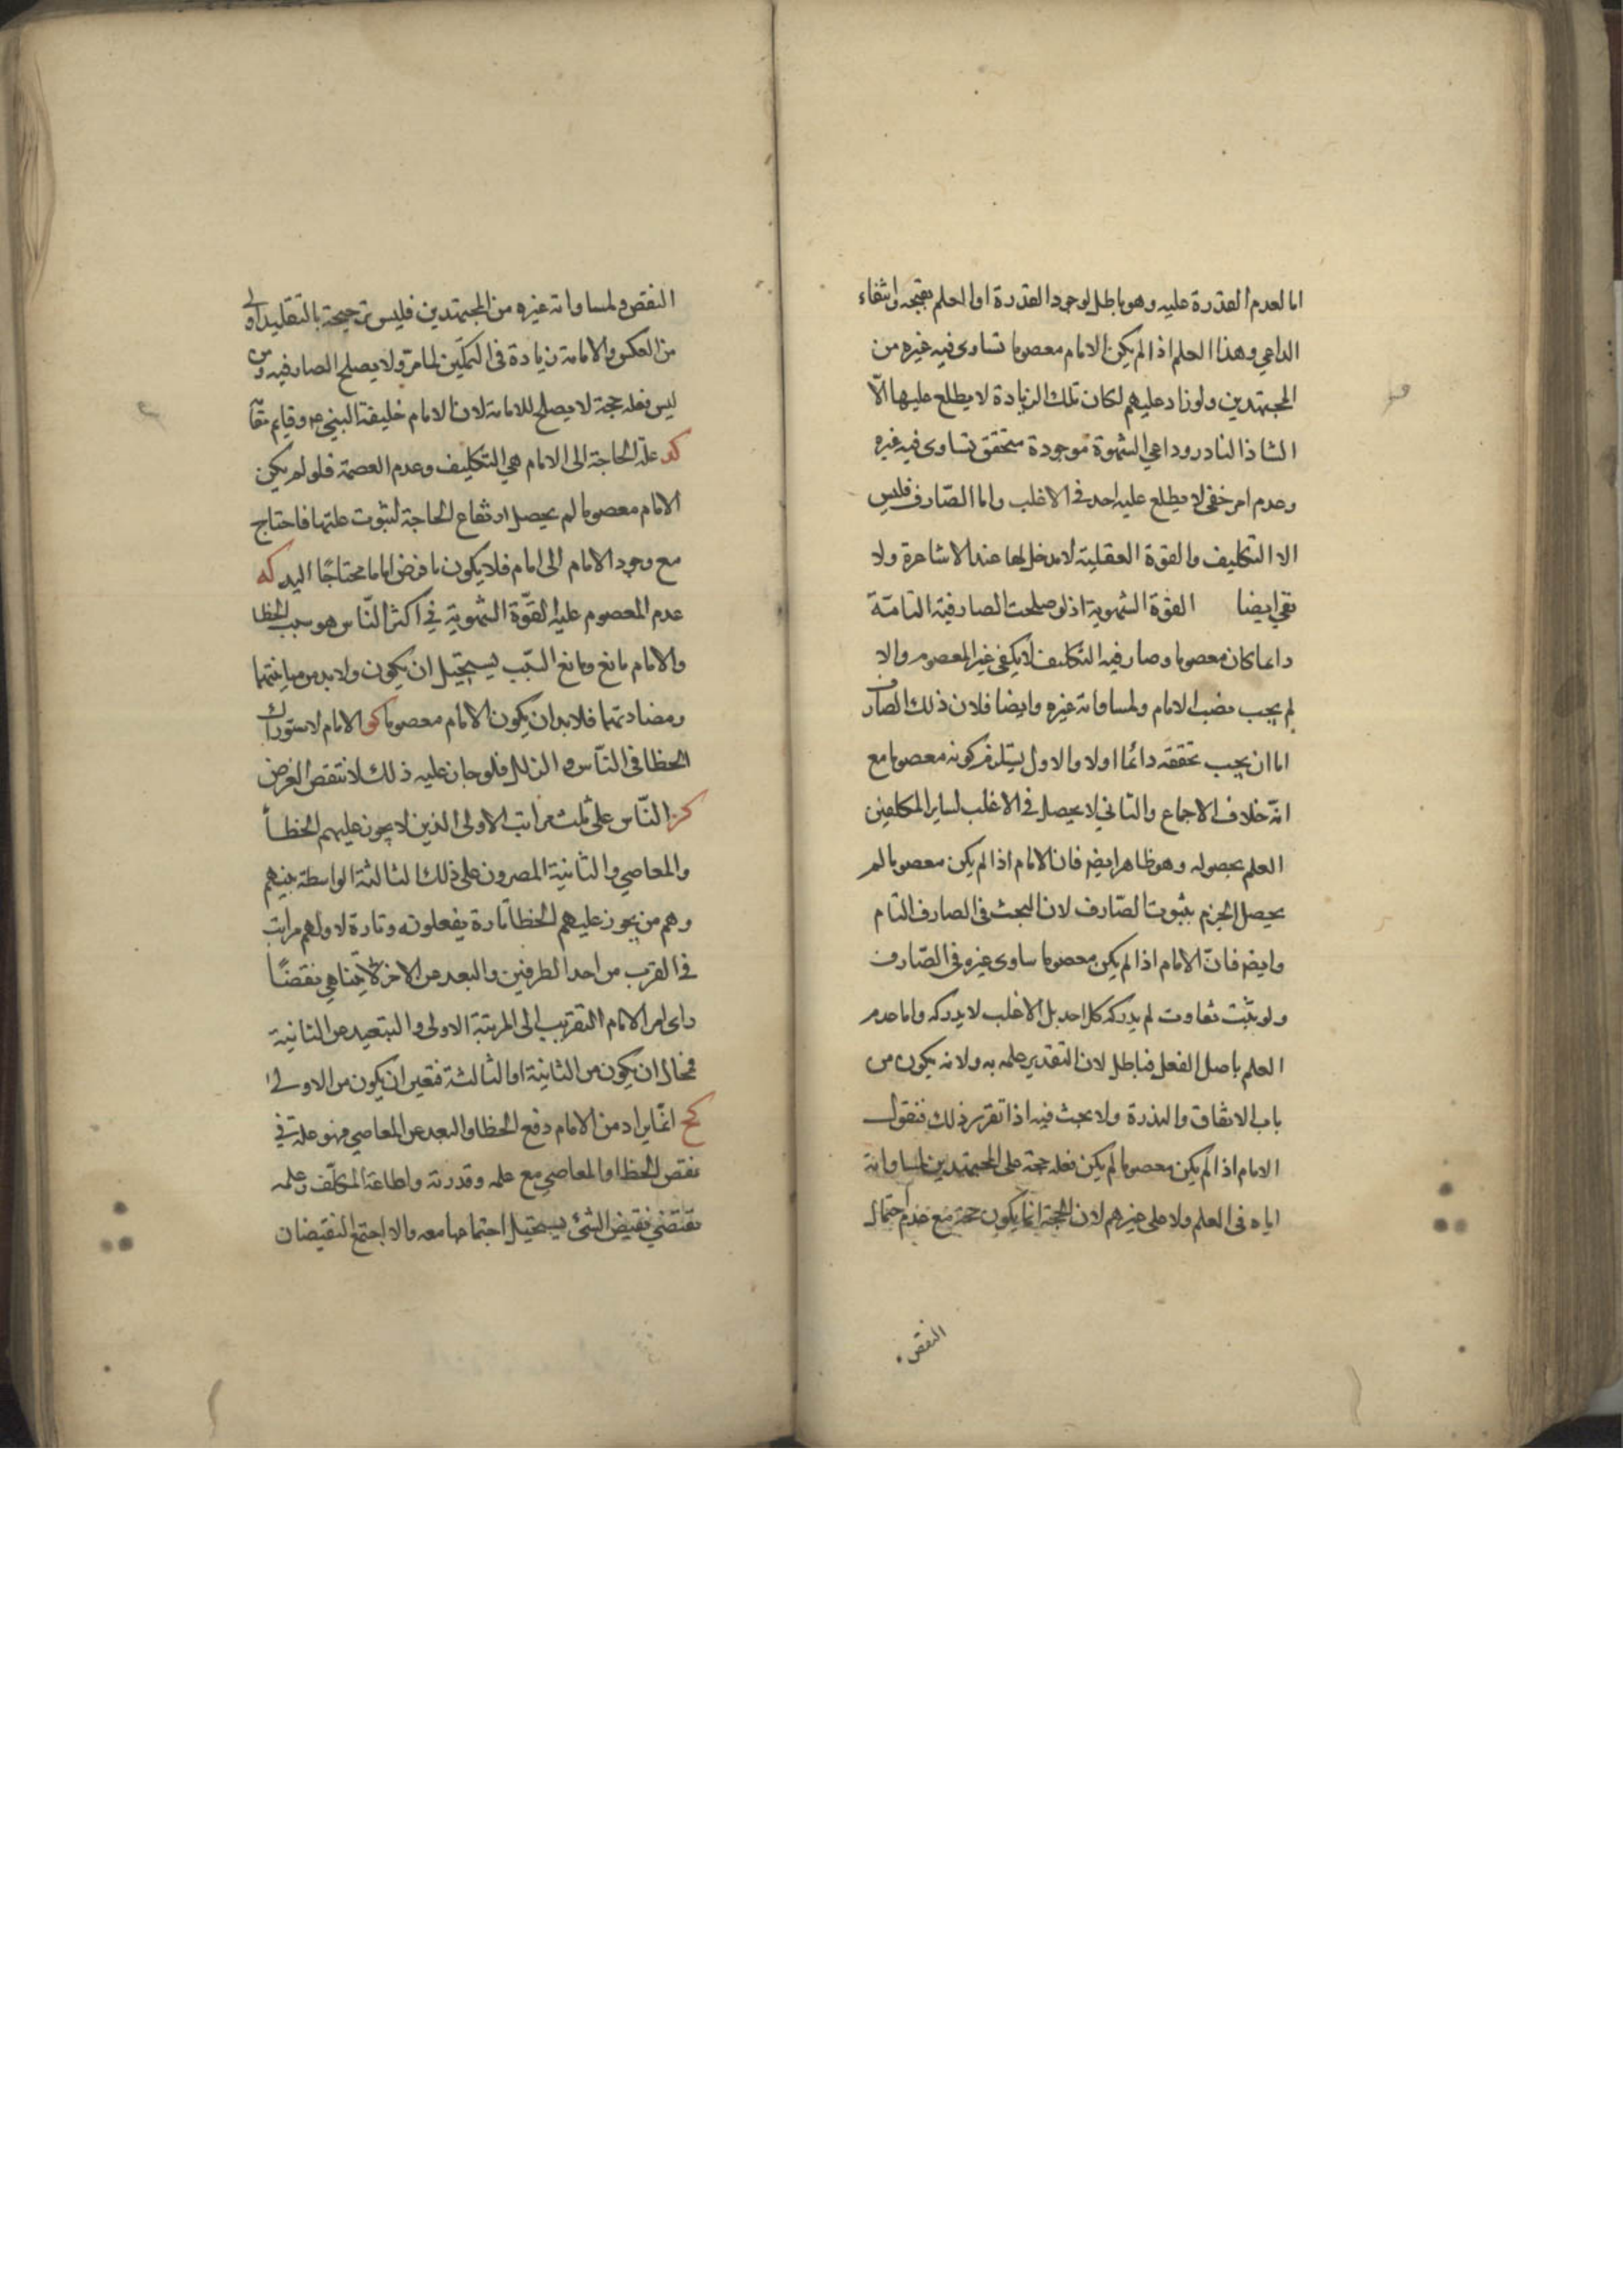 اما لعدم القدرة عليه وهو باطل لوجود القدرة او العلم بقبحه وانتفاء
الداعي وهذا العلم اذا لم يكن الامام معصوما تساوى فيه غيره من
المجتهدين ولو زاد عليهم لكان تلك الزيادة لا يطلع عليها الّا
الشاذ النادر وداعي الشهوة موجودة متحقق تساوى فيه غيره
وعدم امر خفي لا يطلع عليه احد في الاغلب واما الصّارف فليس
الا التكليف والقوة العقلية لا مدخل لها عند الاشاعرة ولا
تقي ايضا القوة الشهوية اذ لو صلحت الصارفية التامّة
دائما كان معصوما وصارفية التكليف لا يكفي غير المعصوم والا
لم يجب نصب الامام ولمساواته غيره وايضا فلان ذلك الصارف
اما ان يجب تحققه دائما اولا والاول يستلزم كونه معصوما مع
انّه خلاف الاجماع والثاني لا يحصل في الاغلب لساير المكلفين
العلم بحصوله وهو ظاهر ايضا فان الامام اذا لم يكن معصوما لم
يحصل الجزم بثبوت الصّارف لان البحث في الصارف التام
وايضا فانّ الامام اذا لم يكن معصوما ساوى غيره في الصّارف
ولو يثبت تفاوت لم يدركه كل احد بل الاغلب لا يدركه واما عدم
العلم باصل الفعل فباطل لان التقدير علمه به ولانه يكون من
باب الاتفاق والندرة ولا بحث فيه اذا تقرر ذلك فنقول
الامام اذا لم يكن معصوما لم يكن فعله حجة على المجتهدين لمساواته
اياه في العلم ولا على غيرهم لان الحجة انما يكون حجة مع عدم احتمال
النقص
النقص ولمساواته غيره من المجتهدين فليس ترجيحه بالتقليد اولى
من العكس والامامة زيادة في التمكين لما مرّ ولا يصلح الصارفية ومن
ليس فعله حجة لا يصلح للامامة لان الامام خليفة النبي ع م وقايم مقامه
كد علة الحاجة الى الامام هي التكليف وعدم العصمة فلو لم يكن
الامام معصوما لم يحصل ارتفاع الحاجة لثبوت علتها فاحتاج
مع وجود الامام الى امام فلا يكون ما فرض اماما محتاجًا اليه كه
عدم المعصوم علية القوّة الشهوية في اكثر النّاس هو سبب الخطا
والامام مانع ومانع السّبب يستحيل ان يكون ولا بد من مباينتها
ومضادتها فلا بد ان يكون الامام معصوما كو الامام لاستدراك
الخطا في النّاس والزلل فلو جاز عليه ذلك لانتقض الغرض
كز النّاس على ثلث مراتب الاولى الذين لا يجوز عليهم الخطأ
والمعاصي والثانية المصرون على ذلك الثالثة الواسطة بينهم
وهم من يجوز عليهم الخطا تارة يفعلونه وتارة لا ولهم مراتب
في القرب من احد الطرفين والبعد عن الاخر لا يتناهى نقصًا
داى امر الامام التقريب الى المرتبة الاولى والتبعيد عن الثانية
فمحال ان يكون من الثانية او الثالثة فتعين ان يكون من الاولى
كح انّما يراد من الامام دفع الخطا والبعد عن المعاصي فهو علة في
نقص الخطا والمعاصي مع علمه وقدرته واطاعة المكلّف وعلمه
تقتضي نقيض الشئ يستحيل اجتماعها معه والا اجتمع النقيضان